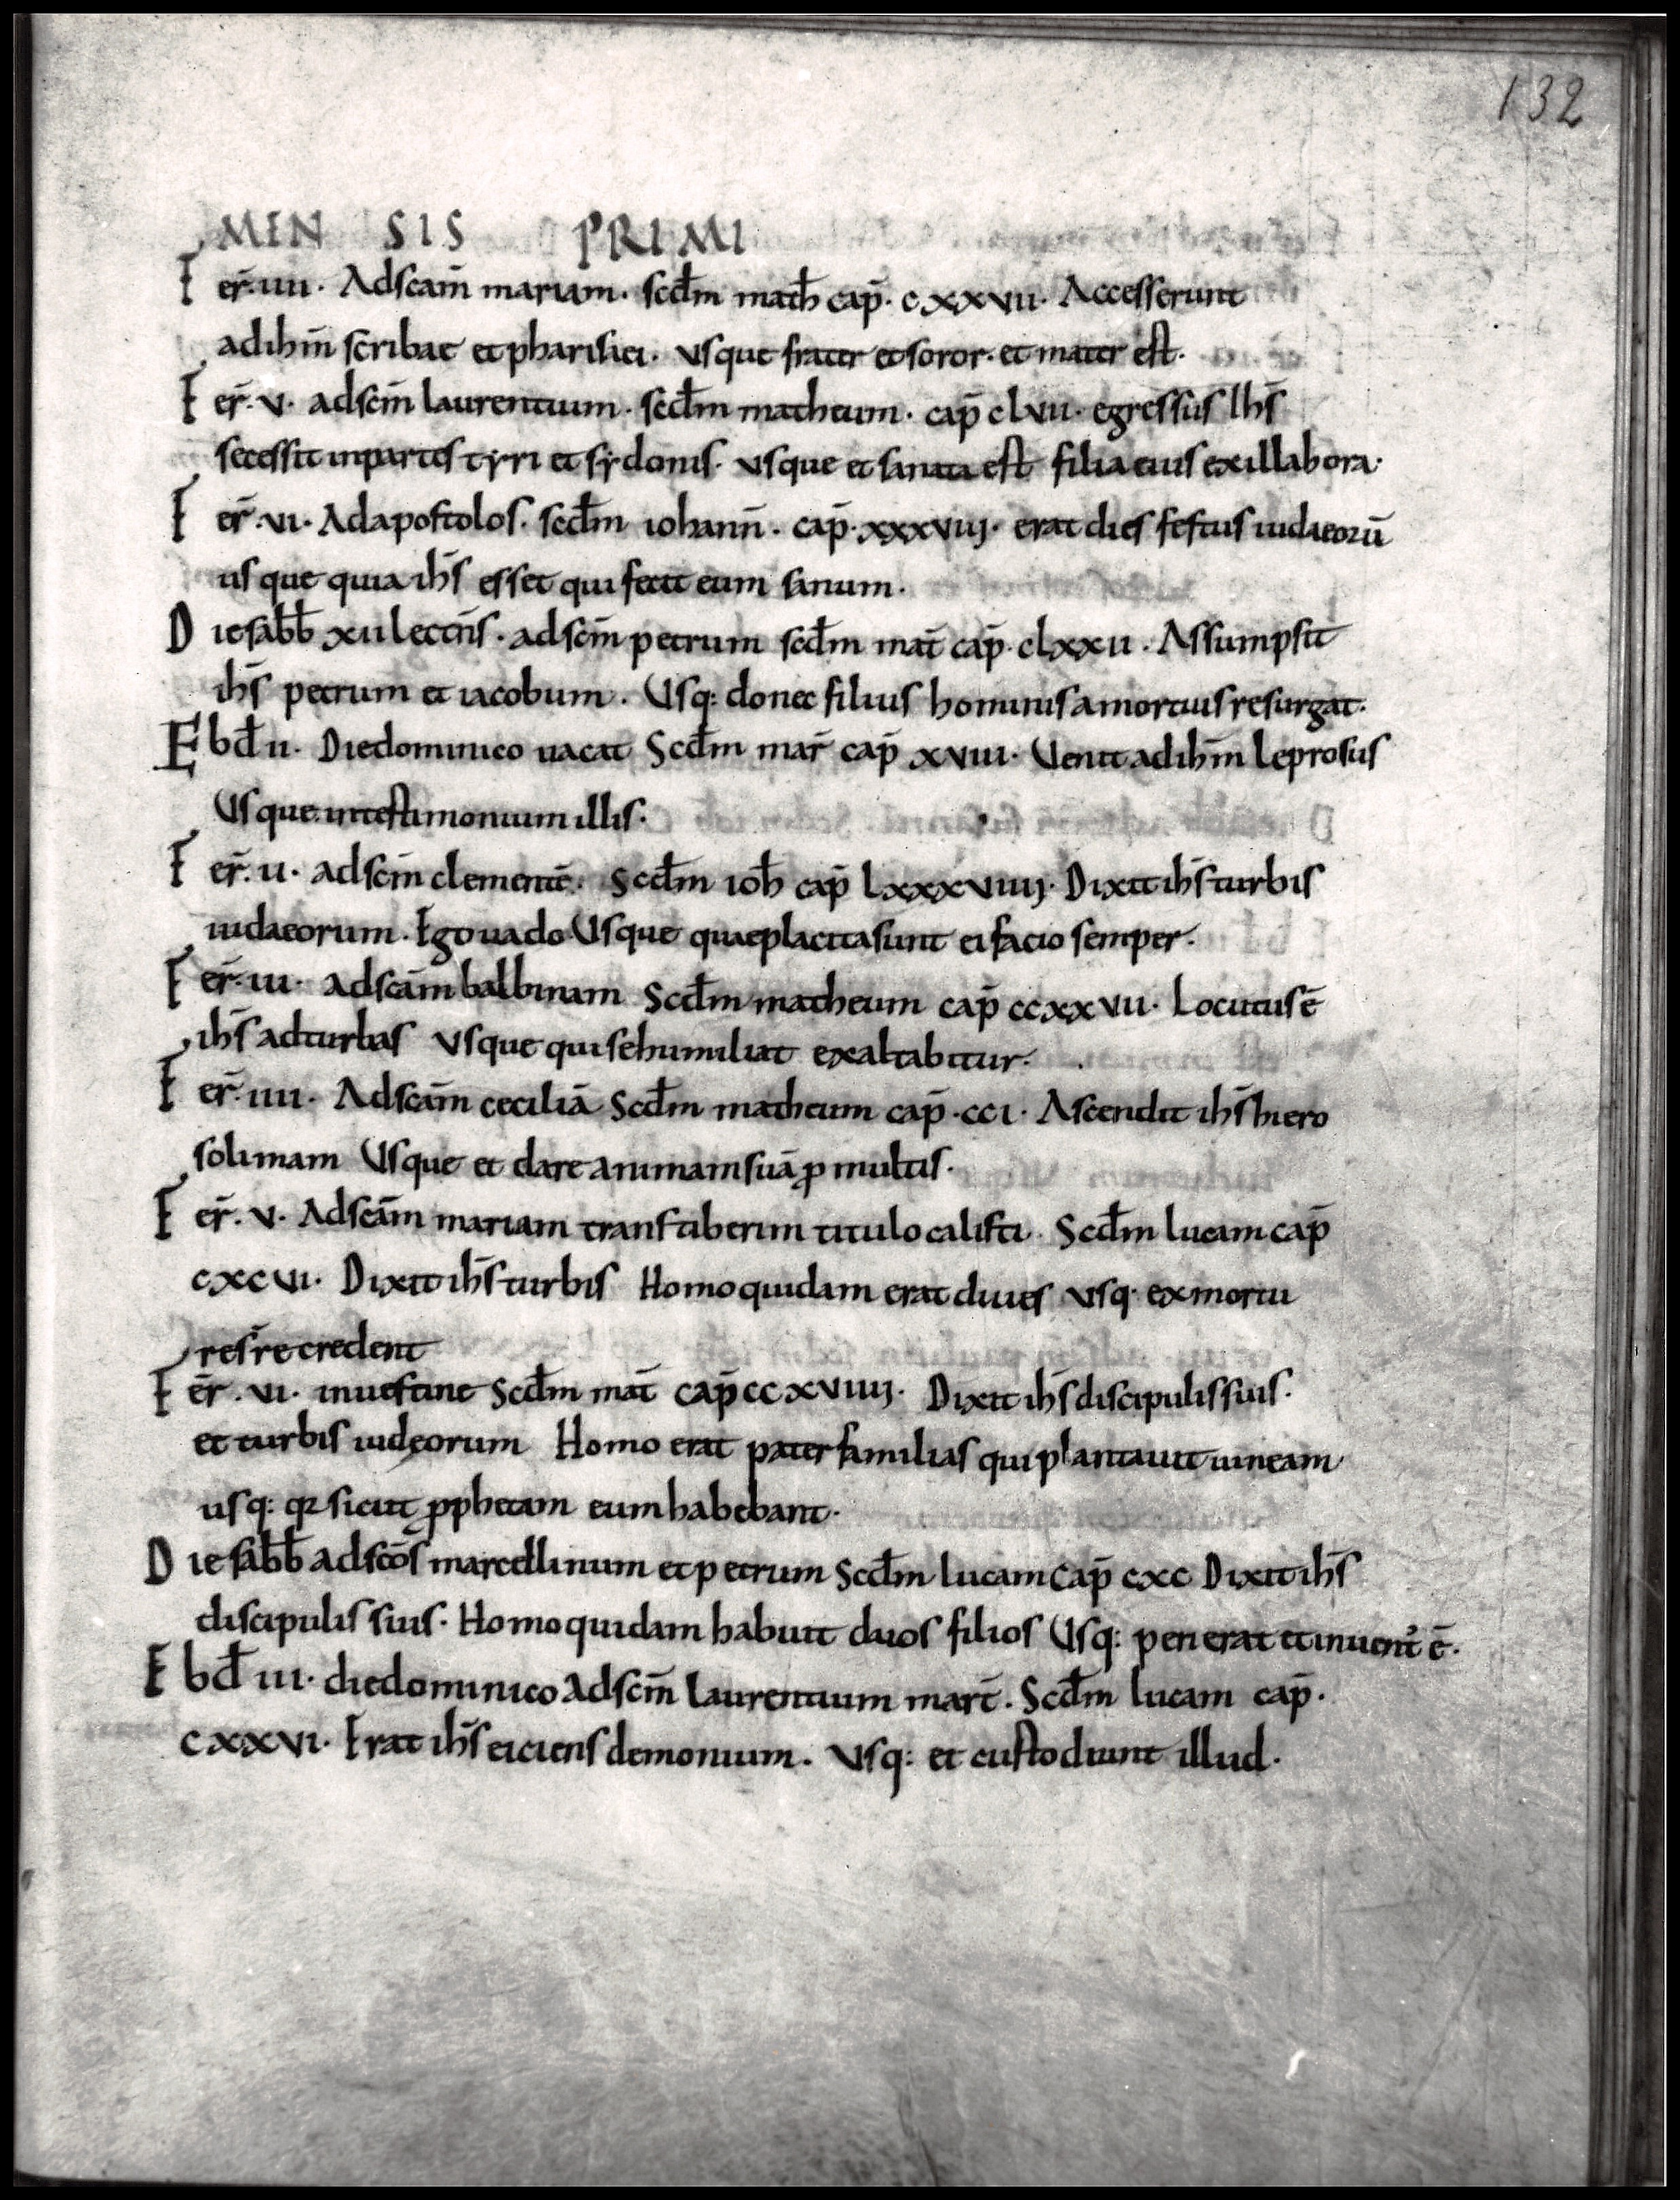 132
MENSIS PRIMI
Fer̄. iiii. Adscam̄ mariam. scdm̄ math̄ cap̄. cxxvii. Accesserunt
adihm̄ scribae et pharisaei. usque frater et soror. et mater est.
Fer̄. v. adscm̄ laurentium. scdm̄ matheum. cap̄ clvii. egressus Ihs̄
secessit inpartes tyri et sydonis. usque et sanata est filia eius exilla hora.
Fer̄. vi. Adapostolos. scdm̄ iohann̄. cap̄. xxxviiij. erat dies festus iudaeorū
usque quia ihs̄ esset qui fecit eum sanum.
Die sabb̄ xii lectn̄s. ad scm̄ petrum scdm̄ mat̄ cap̄. clxxii. Assumpsit
ihs̄ petrum et iacobum. Usq: donec filius hominis amortuis resurgat.
Ebd̄ ii. Diedominico uacat Scdm̄ mar̄ cap̄ xviii. Uenit adihm̄ leprosus
Usque intestimonium illis.
Fer̄. ii. adscm̄ clementē. Scdm̄ ioh̄ cap̄ lxxxviiij. Dixit ihs̄ turbis
iudaeorum. Ego uado Usque quae placita sunt ei facio semper.
Fer̄. iii. adscām balbinam Scdm̄ matheum cap̄ ccxxvii. Locutus ē
ihs̄ adturbas Usque qui sehumiliat exaltabitur.
Fer̄. iiii. Adscām ceciliā Scdm̄ matheum cap̄. cci. Ascendit ihs̄ hiero
solimam Usque et dare animam suā ꝓ multis.
Fer̄. v. Adscām mariam transtiberim titulo calisti. Scdm̄ lucam cap̄
cxcvi. Dixit ihs̄ turbis Homo quidam erat diues usq. ex mortu
resr̄e credent
Fer̄. vi. inuestine Scdm̄ mat̄ cap̄ ccxviiij. Dixit ihs̄ discipulis suis.
et turbis iudęorum Homo erat pater familias qui plantauit uineam
usq: qꝛ sicut ꝓphetam eum habebant.
Die sabb̄ ad scōs marcellinum et petrum Scdm̄ lucam Cap̄ cxc Dixit ihs̄
discipulis suis. Homo quidam habuit duos filios Usq: perierat et inuent᾿ ē.
Ebd̄ iii. diedominico Adscm̄ Laurentium mart̄. Scdm̄ lucam cap̄.
cxxvi. Erat ihs̄ eiciens demonium. Usq: et custodiunt illud.